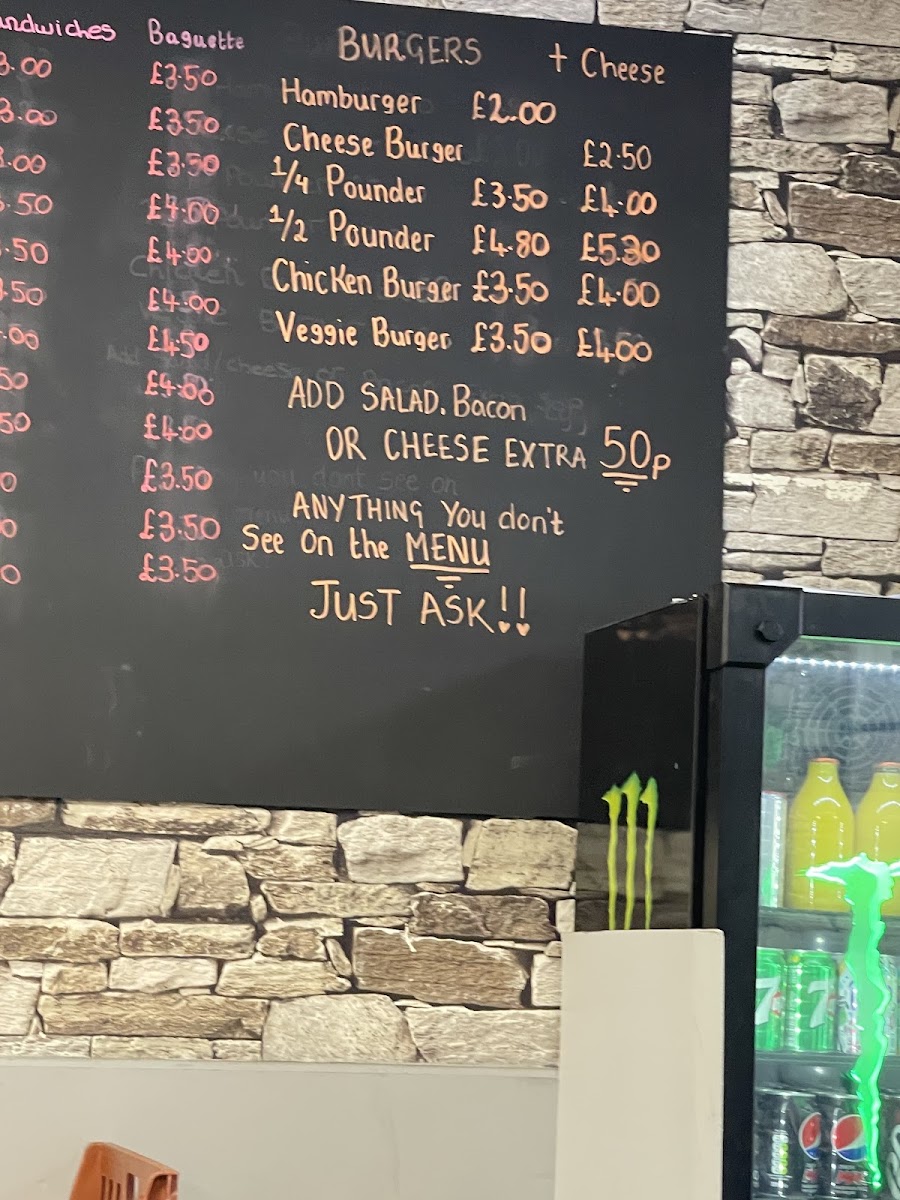 Baguette
£3.50
£3.50
£3.50
£4.00
£4.00
£4.00
£4.50
£4.00
£3.50
£3.50
£3.50
BURGERS + Cheese
Hamburger £2.00
Cheese Burger £2.50
1/4 Pounder £3.50 £4.00
1/2 Pounder £4.80 £5.30
Chicken Burger £3.50 £4.00
Veggie Burger £3.50 £4.00
ADD SALAD. Bacon
OR CHEESE EXTRA 50p
ANYTHING You don't
See On the MENU
JUST ASK!!
7
7